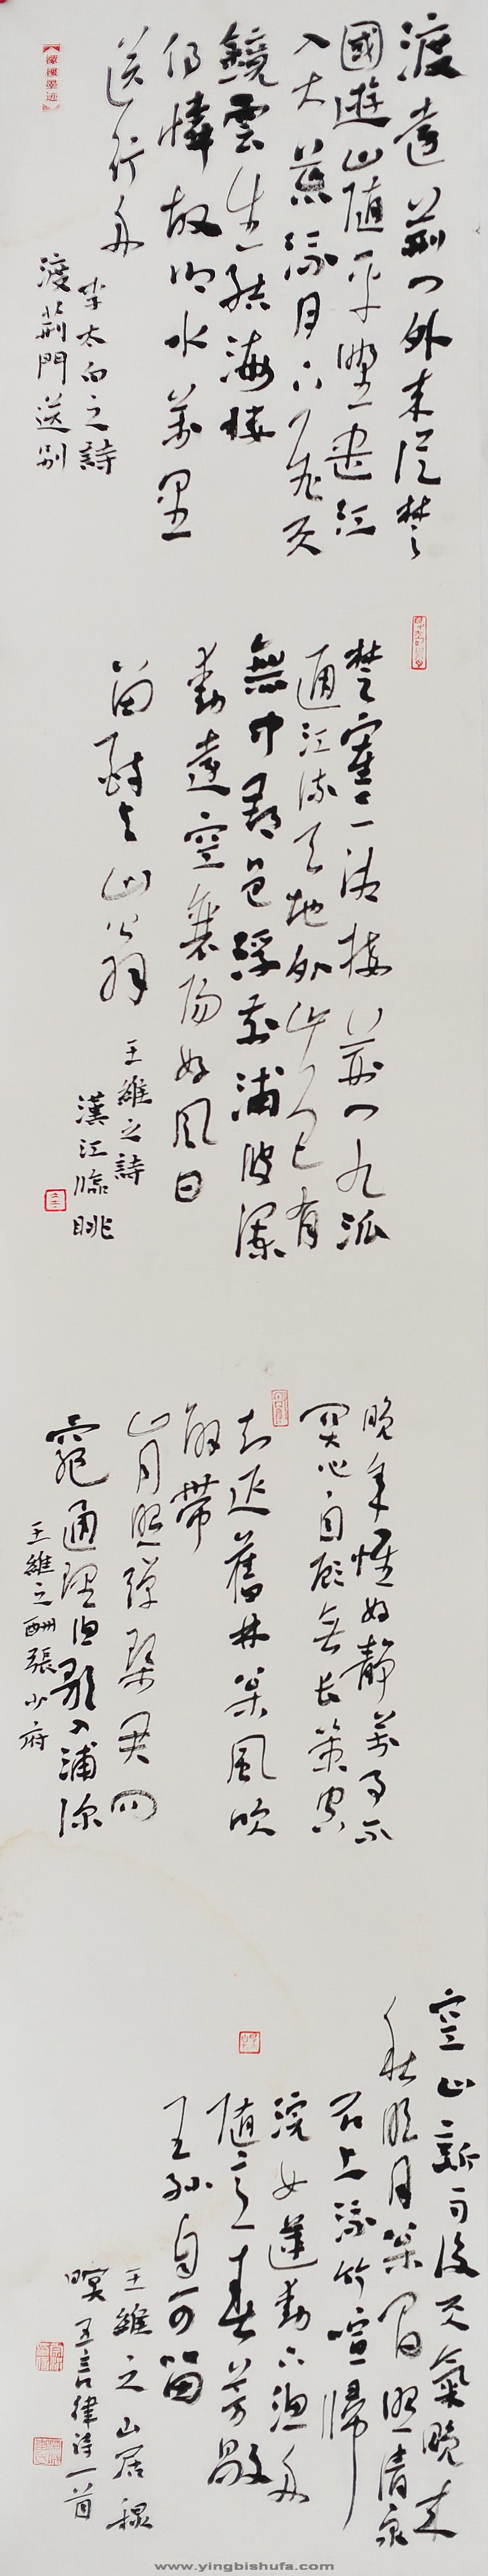 渡遠荊門外来從楚
國遊山隨平野盡江
入大荒流月下飛天
鏡雲生結海樓
仍憐故鄉水萬里
送行舟
李太白之詩
渡荊門送別
楚塞三湘接荊門九派
通江流天地外山色有
無中郡邑浮前浦波瀾
動遠空襄陽好風日
留醉與山翁
王維之詩
漢江臨眺
晚年惟好靜萬事不
關心自顧無長策空
知返舊林松風吹
解帶
山月照彈琴君問
窮通理漁歌入浦深
王維之酬張少府
空山新雨後天氣晚来
秋明月松間照清泉
石上流竹喧歸
浣女蓮動下漁舟
隨意春芳歇
王孫自可留
王維之山居秋
暝五言律詩一首
www.yingbishufa.com